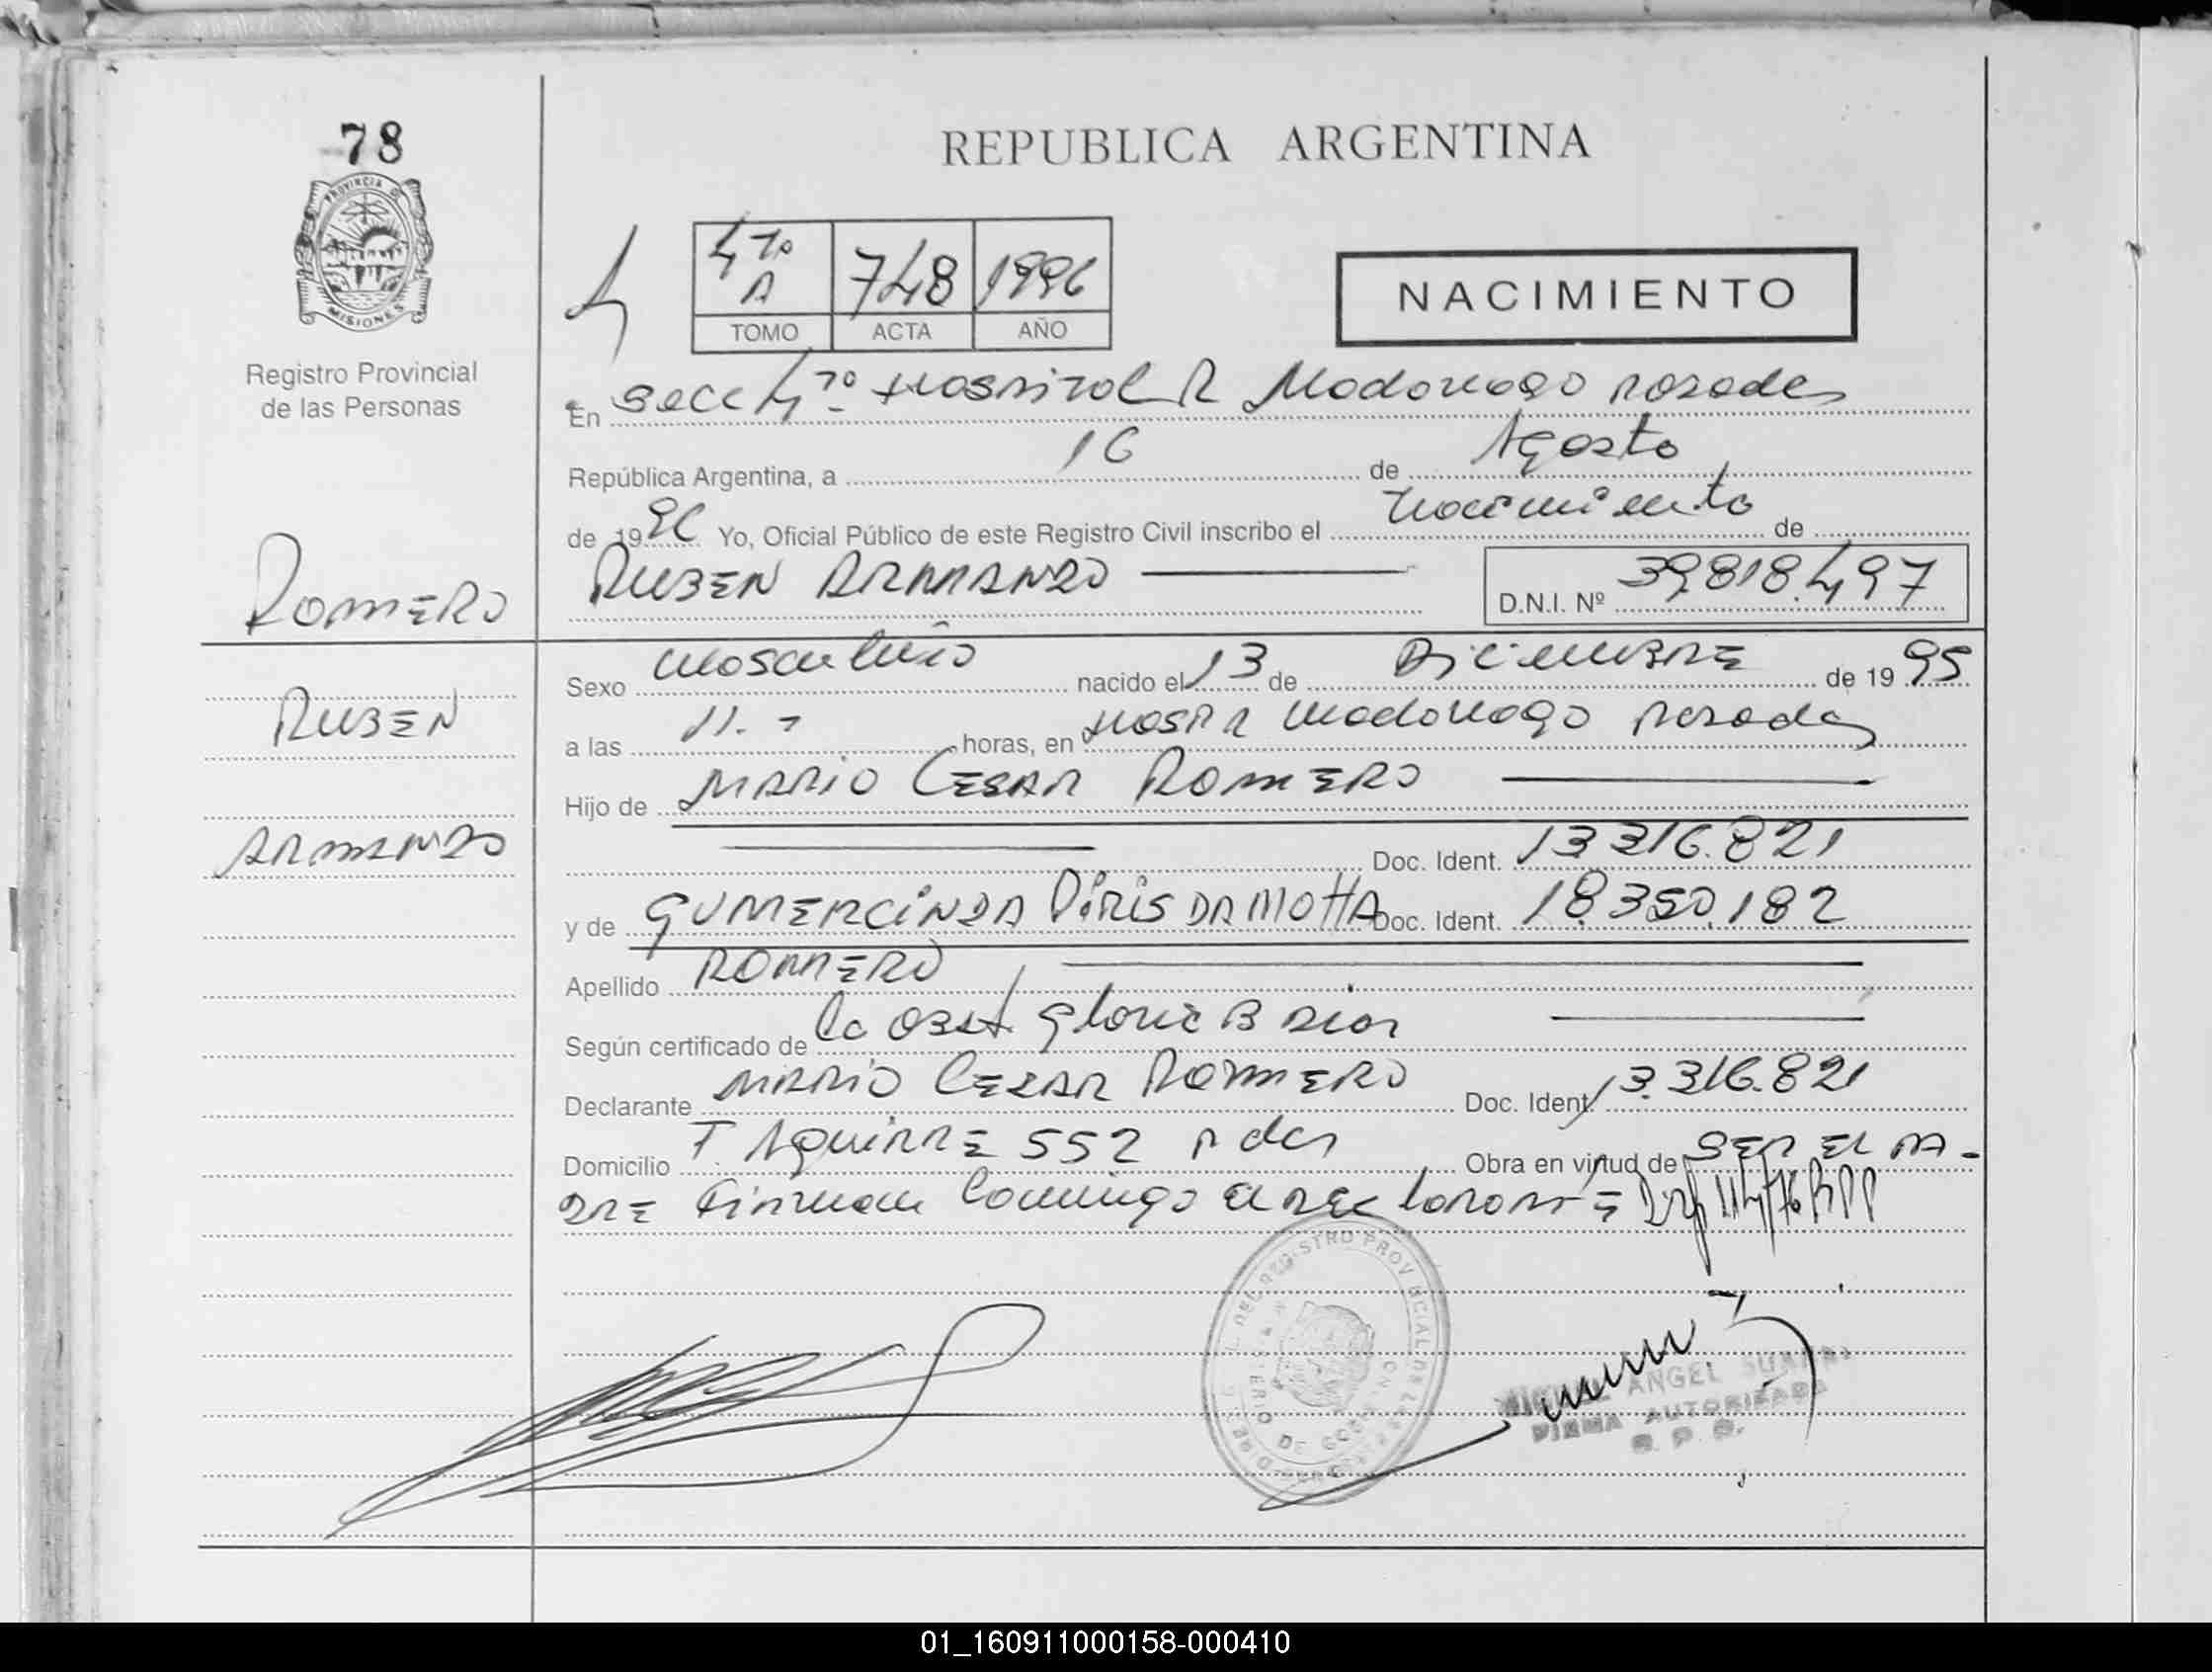 78
REPUBLICA ARGENTINA
PROVINCIA D
MISIONES
Registro Provincial
de las Personas
4to A 748 1996
TOMO ACTA AÑO
NACIMIENTO
En Secc 4to Hospital R Madariaga Posadas
República Argentina, a 16 de Agosto
de 1996 Yo, Oficial Público de este Registro Civil inscribo el Nacimiento de
RUBEN ARMANDO D.N.I. Nº 39.818.497
ROMERO
RUBEN
ARMANDO
Sexo masculino nacido el 13 de DICIEMBRE de 1995
a las 11.- horas, en Hosp R Madariaga Posadas
Hijo de MARIO CESAR ROMERO
Doc. Ident. 13.316.821
y de GUMERCINDA PIRIS DA MOTTA Doc. Ident. 18.350.182
Apellido ROMERO
Según certificado de la Obst Gloria B
Declarante MARIO CESAR ROMERO Doc. Ident. 13.316.821
Domicilio T. AGUIRRE 552 Pdas Obra en virtud de SER EL PA-
DRE Firman Conmigo el declarante
MIGUEL ANGEL
FIRMA AUTORIZADA
R. P. P.
01_160911000158-000410